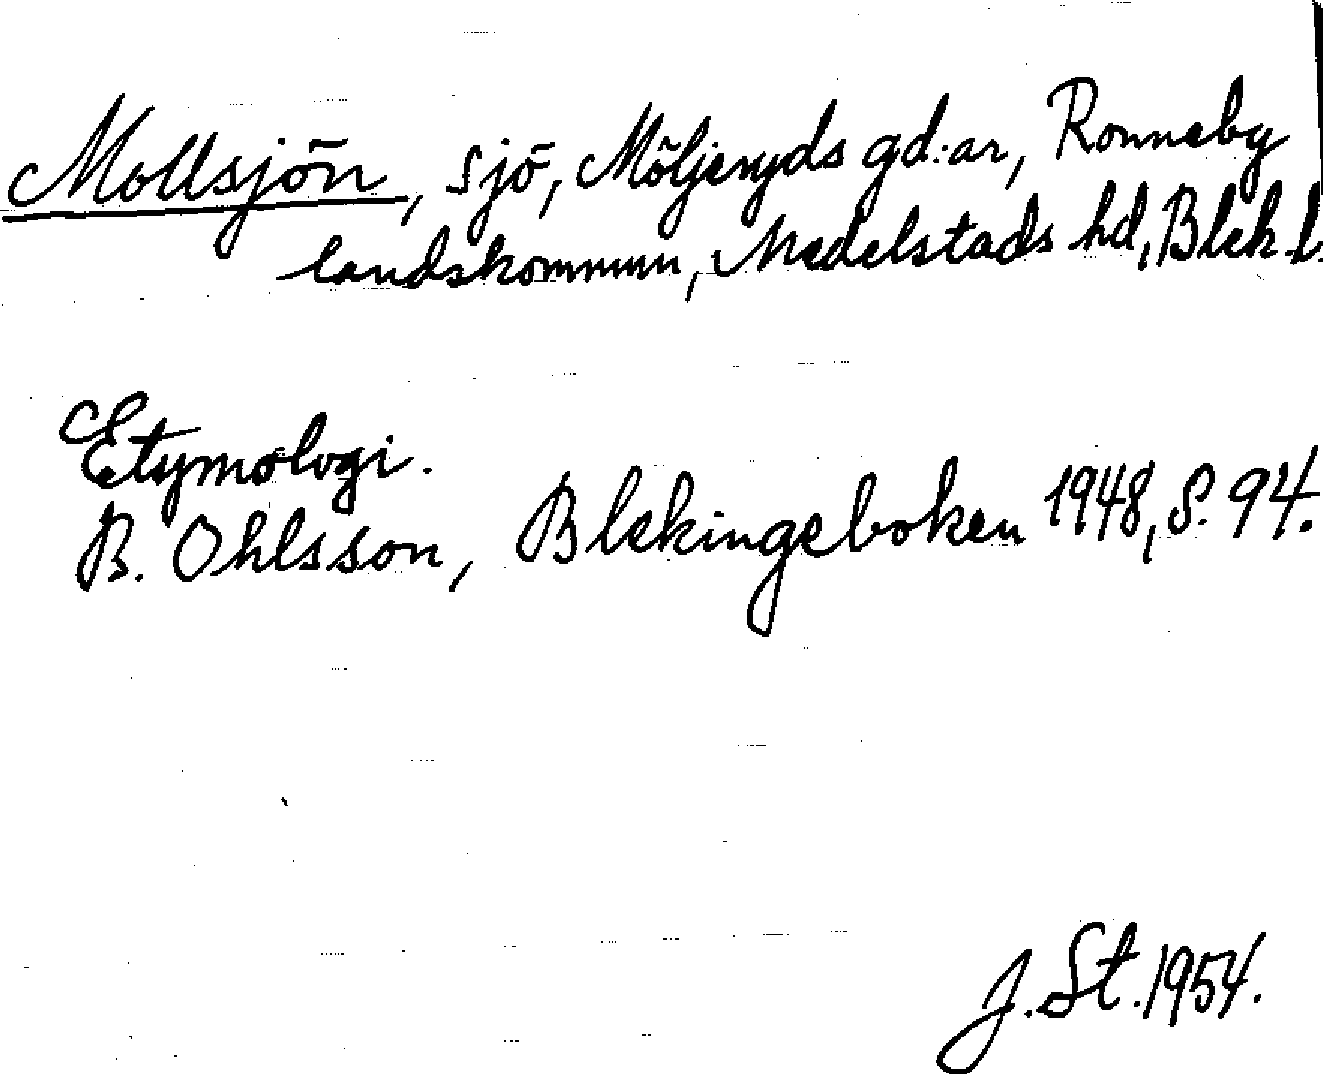 Mollsjön, sjö, Möljeryds gd:ar, Ronneby
landskommun, Medelstads hd, Blek. l.
Etymologi.
B. Ohlsson, Blekingeboken 1948, S. 94.
J. St. 1954.